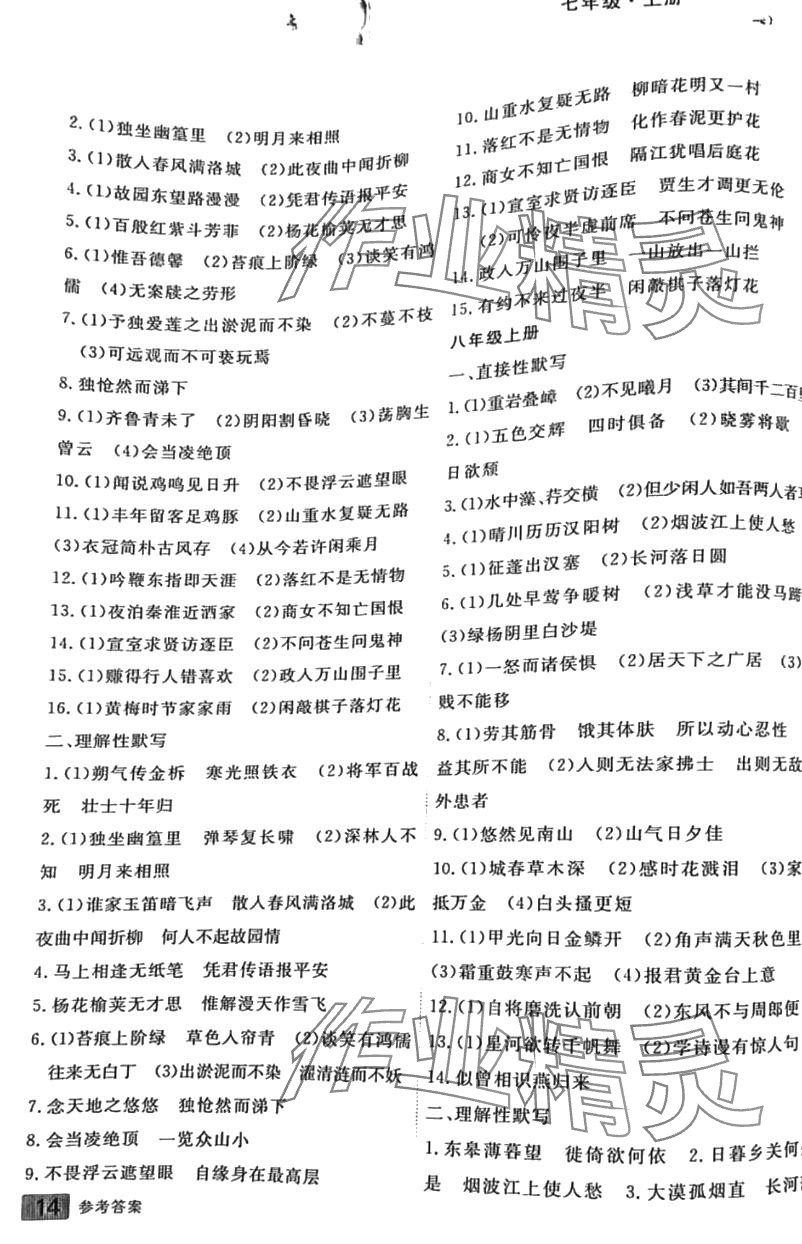 七年级·上册
2.(1)独坐幽篁里 (2)明月来相照
3.(1)散人春风满洛城 (2)此夜曲中闻折柳
4.(1)故园东望路漫漫 (2)凭君传语报平安
5.(1)百般红紫斗芳菲 (2)杨花榆荚无才思
6.(1)惟吾德馨 (2)苔痕上阶绿 (3)谈笑有鸿
儒 (4)无案牍之劳形
7.(1)予独爱莲之出淤泥而不染 (2)不蔓不枝
(3)可远观而不可亵玩焉
8.独怆然而涕下
9.(1)齐鲁青未了 (2)阴阳割昏晓 (3)荡胸生
曾云 (4)会当凌绝顶
10.(1)闻说鸡鸣见日升 (2)不畏浮云遮望眼
11.(1)丰年留客足鸡豚 (2)山重水复疑无路
(3)衣冠简朴古风存 (4)从今若许闲乘月
12.(1)吟鞭东指即天涯 (2)落红不是无情物
13.(1)夜泊秦淮近酒家 (2)商女不知亡国恨
14.(1)宣室求贤访逐臣 (2)不问苍生问鬼神
15.(1)赚得行人错喜欢 (2)政人万山围子里
16.(1)黄梅时节家家雨 (2)闲敲棋子落灯花
二、理解性默写
1.(1)朔气传金柝 寒光照铁衣 (2)将军百战
死 壮士十年归
2.(1)独坐幽篁里 弹琴复长啸 (2)深林人不
知 明月来相照
3.(1)谁家玉笛暗飞声 散人春风满洛城 (2)此
夜曲中闻折柳 何人不起故园情
4.马上相逢无纸笔 凭君传语报平安
5.杨花榆荚无才思 惟解漫天作雪飞
6.(1)苔痕上阶绿 草色人帘青 (2)谈笑有鸿儒
往来无白丁 (3)出淤泥而不染 濯清涟而不妖
7.念天地之悠悠 独怆然而涕下
8.会当凌绝顶 一览众山小
9.不畏浮云遮望眼 自缘身在最高层
14 参考答案
10.山重水复疑无路 柳暗花明又一村
11.落红不是无情物 化作春泥更护花
12.商女不知亡国恨 隔江犹唱后庭花
13.(1)宣室求贤访逐臣 贾生才调更无伦
(2)可怜夜半虚前席 不问苍生问鬼神
14.政人万山围子里 一山放出一山拦
15.有约不来过夜半 闲敲棋子落灯花
八年级上册
一、直接性默写
1.(1)重岩叠嶂 (2)不见曦月 (3)其间千二百里
2.(1)五色交辉 四时俱备 (2)晓雾将歇
日欲颓
3.(1)水中藻、荇交横 (2)但少闲人如吾两人者
4.(1)晴川历历汉阳树 (2)烟波江上使人愁
5.(1)征蓬出汉塞 (2)长河落日圆
6.(1)几处早莺争暖树 (2)浅草才能没马蹄
(3)绿杨阴里白沙堤
7.(1)一怒而诸侯惧 (2)居天下之广居 (3)
贱不能移
8.(1)劳其筋骨 饿其体肤 所以动心忍性
益其所不能 (2)人则无法家拂士 出则无敌
外患者
9.(1)悠然见南山 (2)山气日夕佳
10.(1)城春草木深 (2)感时花溅泪 (3)家
抵万金 (4)白头搔更短
11.(1)甲光向日金鳞开 (2)角声满天秋色里
(3)霜重鼓寒声不起 (4)报君黄金台上意
12.(1)自将磨洗认前朝 (2)东风不与周郎便
13.(1)星河欲转千帆舞 (2)学诗谩有惊人句
14.似曾相识燕归来
二、理解性默写
1.东皋薄暮望 徙倚欲何依 2.日暮乡关何
是 烟波江上使人愁 3.大漠孤烟直 长河
作业精灵
作业精灵